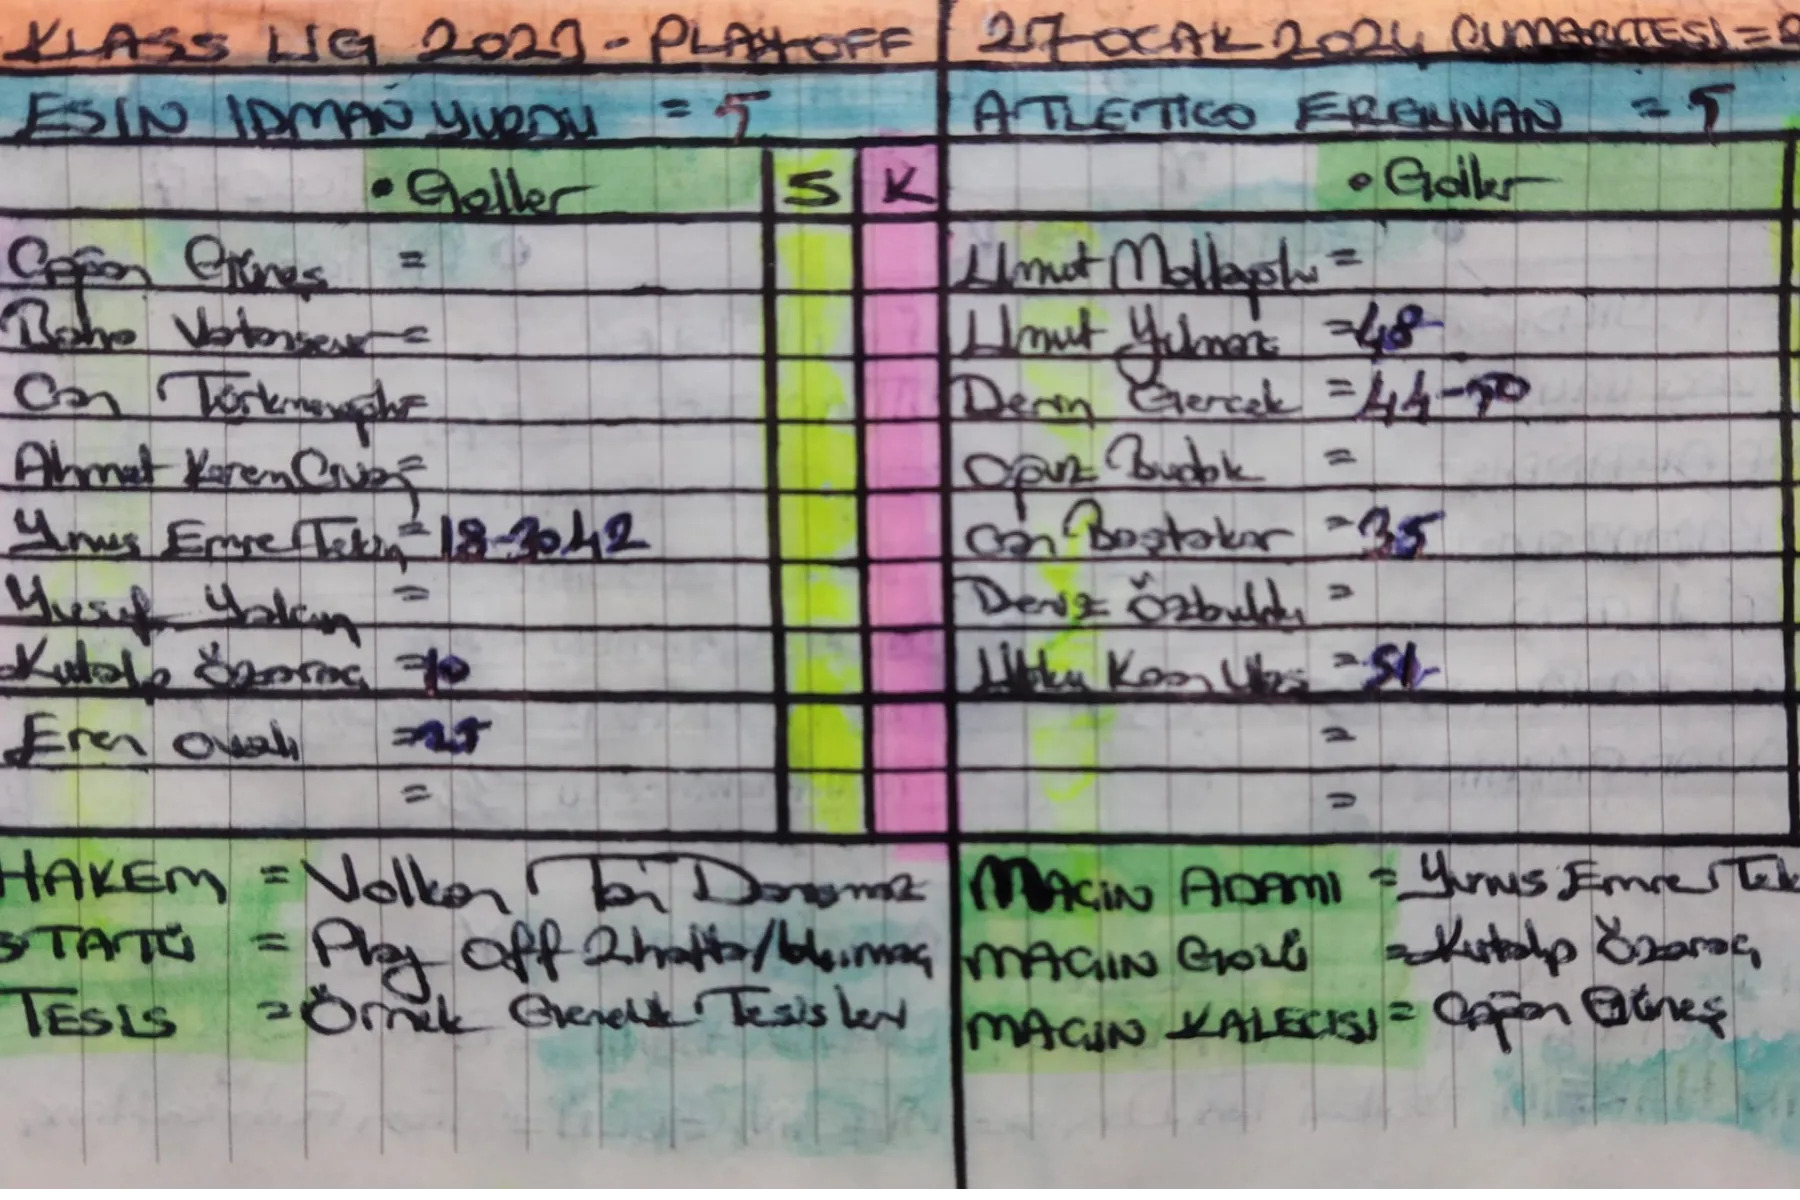 KLASS LİG 2023 - PLAY-OFF
27 OCAK 2024 CUMARTESİ =
ESİN İDMAN YURDU = 5
ATLETICO ERGUVAN = 5
• Goller S K
• Goller
Çağan Güneş =
Umut Mollaoğlu =
Vatansever =
Umut Yılmaz = 48
Can Türkmenoğlu =
Derin Gerçek = 44-50
Ahmet Kerem =
Oğuz Budak =
Yunus Emre Tekin = 18-30-42
Can Baştakar = 35
Yusuf Yalçın =
Deniz Özbuldu =
Kutalp Özaraç = 10
Utku Kaan = 51
Eren Ovalı = 25
=
=
=
HAKEM = Volkan Tan Dönmez
STATÜ = Play Off 2.hafta/
TESİS = Örnek Gençlik Tesisleri
MAÇIN ADAMI = Yunus Emre Tek
MAÇIN GOLÜ = Kutalp Özaraç
MAÇIN KALECİSİ = Çağan Güneş